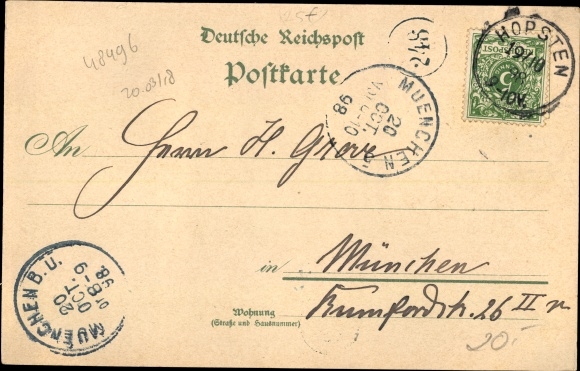 48496
20.03/18
Deutsche Reichspost
Postkarte
246
HOPSTEN
19/10
98
MUENCHEN
20
OCT.
98
An Herrn H. Grove
in München
Wohnung
(Straße und Hausnummer)
Rumfordstr. 26 II r
MUENCHEN B.U.
20
OCT.
8-9
98.
20.-